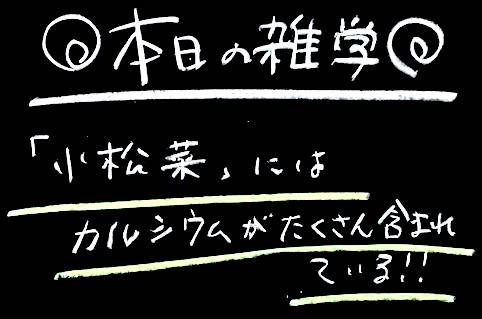 本日の雑学
「小松菜」には
カルシウムがたくさん含まれ
ている!!